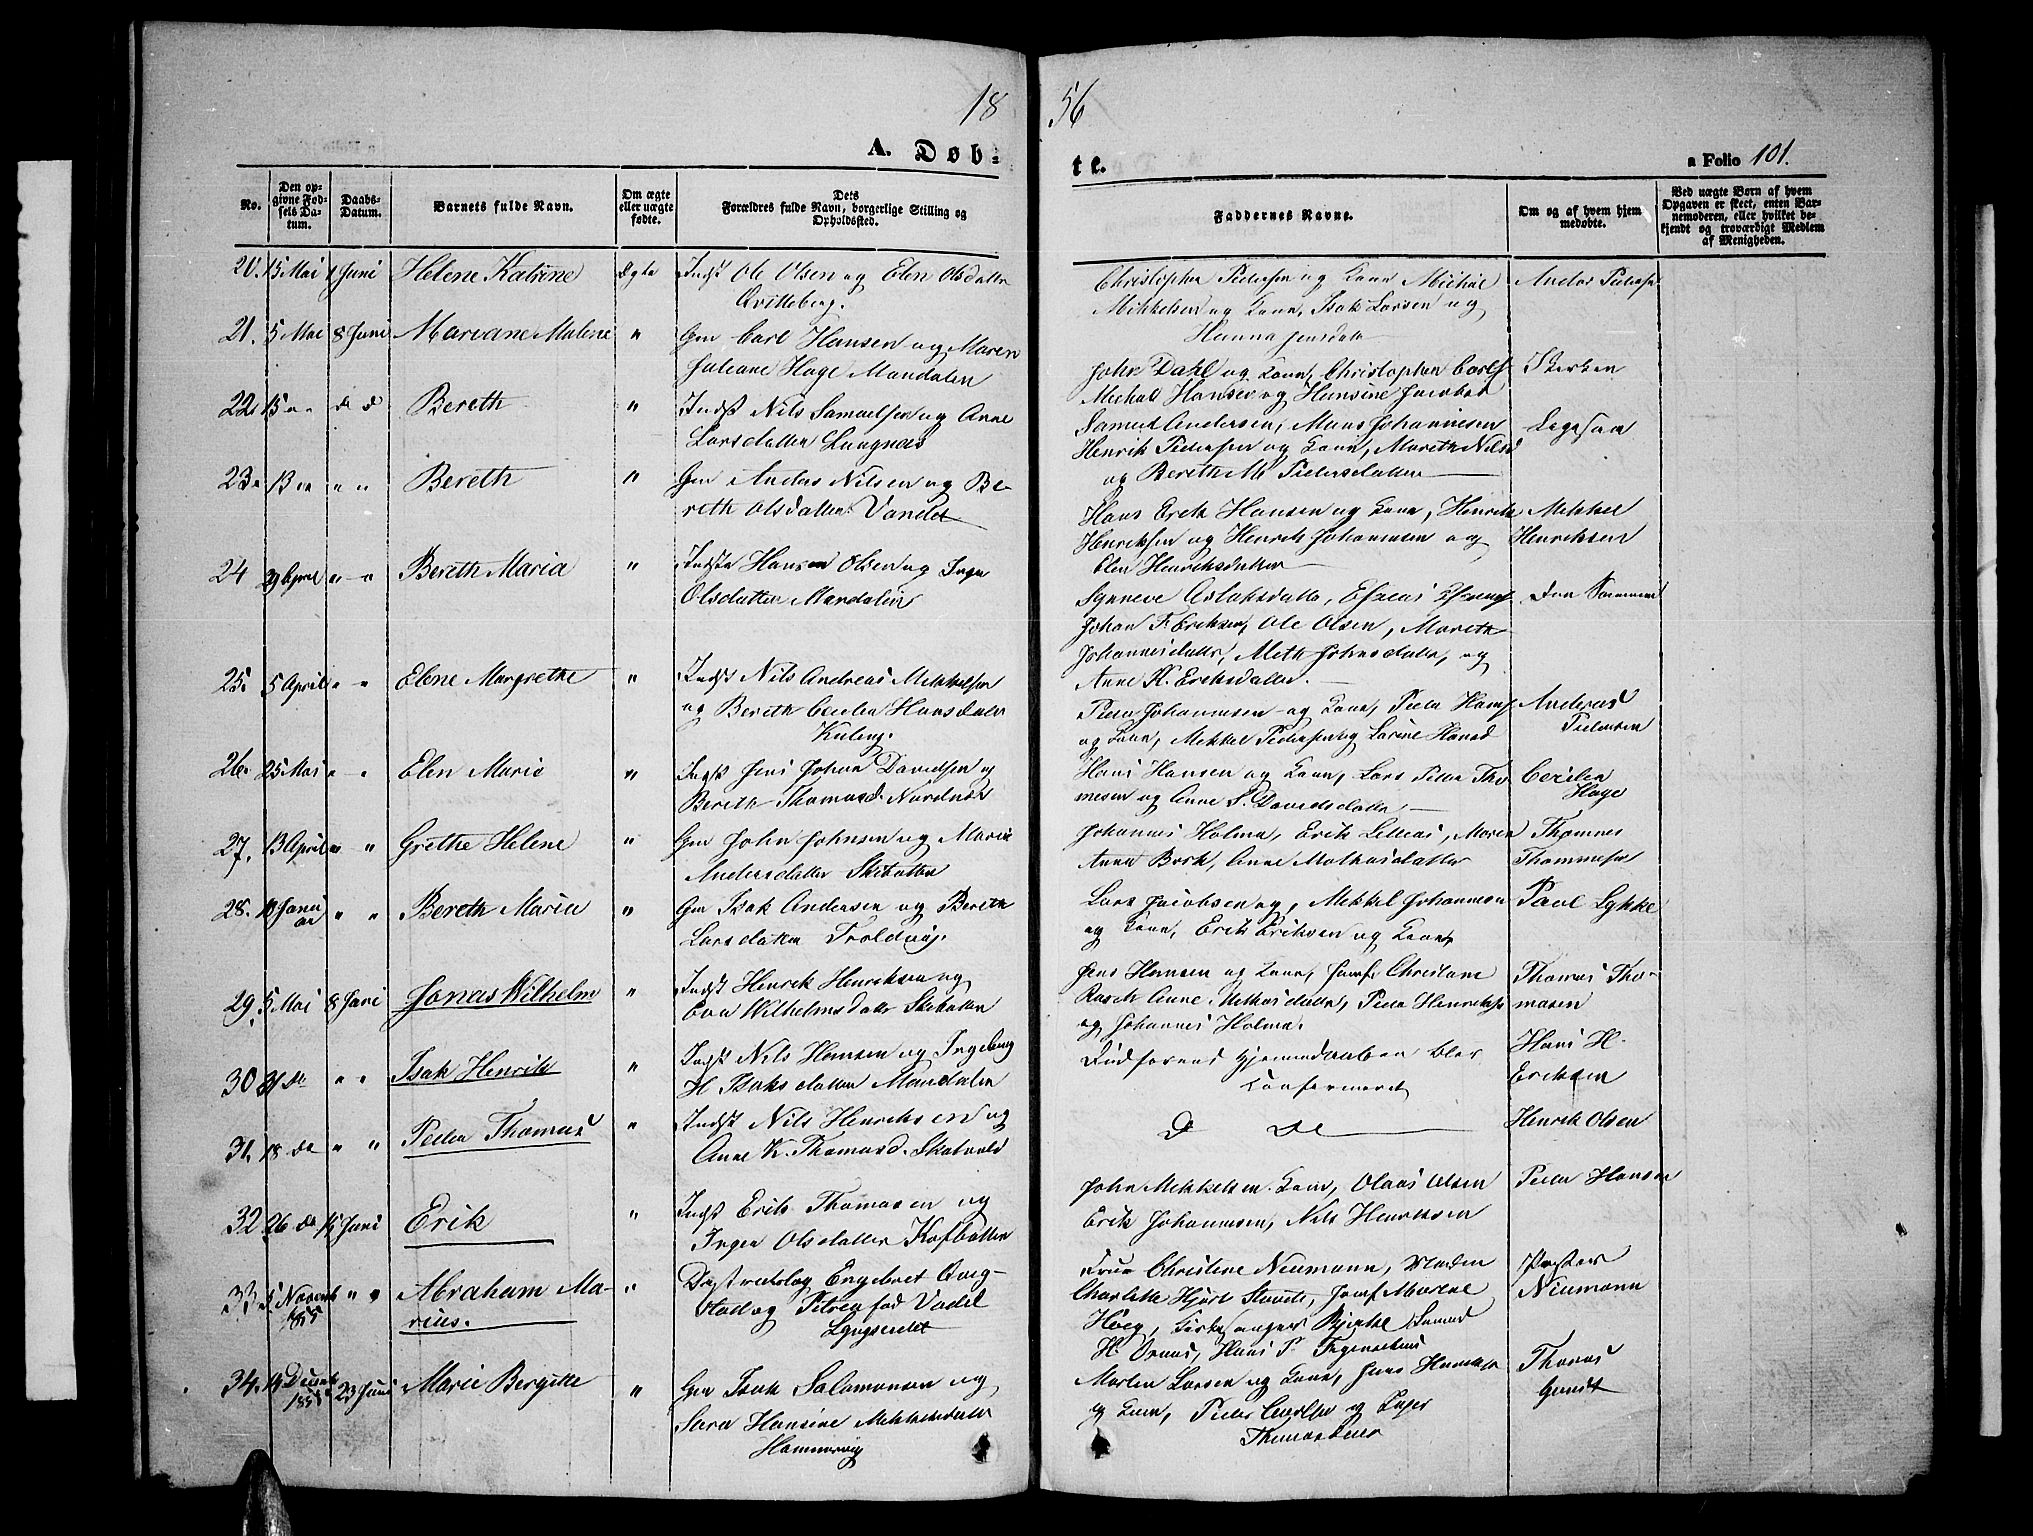 18 56
A. Døb- te.
a Folio 101.
No.
Den op-
givne Fød-
sels Da-
tum.
Daabs-
Datum.
Barnets fulde Navn.
Om ægte
eller uægte
fødte.
Dets
Forældres fulde Navn, borgerlige Stilling og
Opholdssted.
Faddernes Navne.
Om og af hvem hjem
medøbte.
Ved uægte Børn af hvem
Opgaven er skeet, enten Bar-
nemoderen, eller hvilket be-
kjendt og troværdigt Medlem
af Menigheden.
20. 13 Mai 1 Juni Helene Katrine Ægte Indst Ole Olsen og Elen Olsdatter
Qvitteberg.
Christopher Pedersen og Kone Michal
Mikkelsen og Kone, Isak Larsen og
Hanna Jensdatter
Anders Pedersen
21. 5 Mai 8 Juni Mariane Malene " Gm Carl Hansen og Maren
Juliane Hage Mandalen
John Dahl og Kone, Christopher Carls
Michal Hansen og Hansine Jacobsd
22. 15 " d d Bereth " Indst Nils Samuelsen og Anne
Larsdatter Langnæs
Samuel Andersen, Mons Johannesen
Henrik Pedersen og Kone, Marith Nilsd
og Bereth M Pedersdatter
23. 13 " " " Bereth " Gm Anders Nilsen og Be-
reth Olsdatter Vandet
Hans Erik Hansen og Kone, Henrik
Henriksen og Henrik Johannesen og
Elen Henriksdatter
Mikkel
Henriksen
24 29 April " " Bereth Maria " Indst Hansen Olsen og Inger
Olsdatter Mandalen
Synneve Aslaksdatter, Esaias
Johan F. Eriksen, Ole Olsen, Marith
Johannesdatter, Meth Johnsdatter, og
Anne K. Eriksdatter.
25. 5 April " " Elene Margrethe " Indst Nils Andreas Mikkelsen
og Bereth Cecilia Hansdatter
Kileng.
Peder Johannesen og Kone, Peder Hans
og Kone, Mikkel Pedersen og Larine Hansd
Andreas
Pedersen
26. 25 Mai " " Elen Marie " Indst Jens Johan Davidsen og
Bereth Thomasd. Nordnæs
Hans Hansen og Kone, Lars Peder Tho-
mesen og Anne S. Davidsdatter
Cecilia
Hage
27. 13 April " " Grethe Helene " Gm John Johnsen og Maria
Andersdatter Skibotten
Johannes Holma, Erik Lilleas, Maren
Anna Bork, Anne Mathisdatter
Thomes
Thommesen
28. 10 Janu
ar " " Bereth Maria " Gm Isak Andersen og Bereth
Larsdatter Troldvig.
Lars Jacobsen og, Mikkel Johannesen
og Kone, Erik Eriksen og Kone
Paul Lykke
29. 5 Mai 8 Juni Jonas Wilhelm " Indst Henrik Henriksen og
Eva Wilhelmsdatter Skibotten
Jens Hansen og Kone, Jomf. Christiane
Rasch Anne Mathisdatter, Peder Henriksen
og Johannes Holma.
Thomas Tho-
masen
30 31 de " " Isak Henrik " Indst Nils Hansen og Ingeborg
H Isaksdatter Mandalen
Hjemmedaaben blev
Confirmeret
Hans H.
Eriksen
31. 18 de " " Peder Thomas " Indst Nils Henriksen og
Anne K. Thomasd. Skatvold
D de
Henrik Olsen
32 26 de 15 Juni Erik " Indst Erik Thomasen og
Inger Olsdatter Kofbotten
John Mikkelsen Kone, Olaus Olsen
Erik Johannesen, Nils Henriksen
Peder Hansen
33 Novemb
1855 " " Abraham Ma-
rius. " Distriktslæg Engebret
og Petrea fød Vadel
Lyngseidet
Frue Christine Neumann, Madm
Charlotte Hjort, Jomf Marene
Høeg, Kirkesanger Bjerke
H. Hans P.
Pastor
Neumann
34. 14 Decemb
1855 23 Juni Marie Bergitte " Gm Isak Salamonsen og
Sara Hansine Mikkelsdatter
Hammervig
Morten Larsen og Kone, Jens Hansen
og Kone, Peder og Inger
Thomasdatter
Thomas